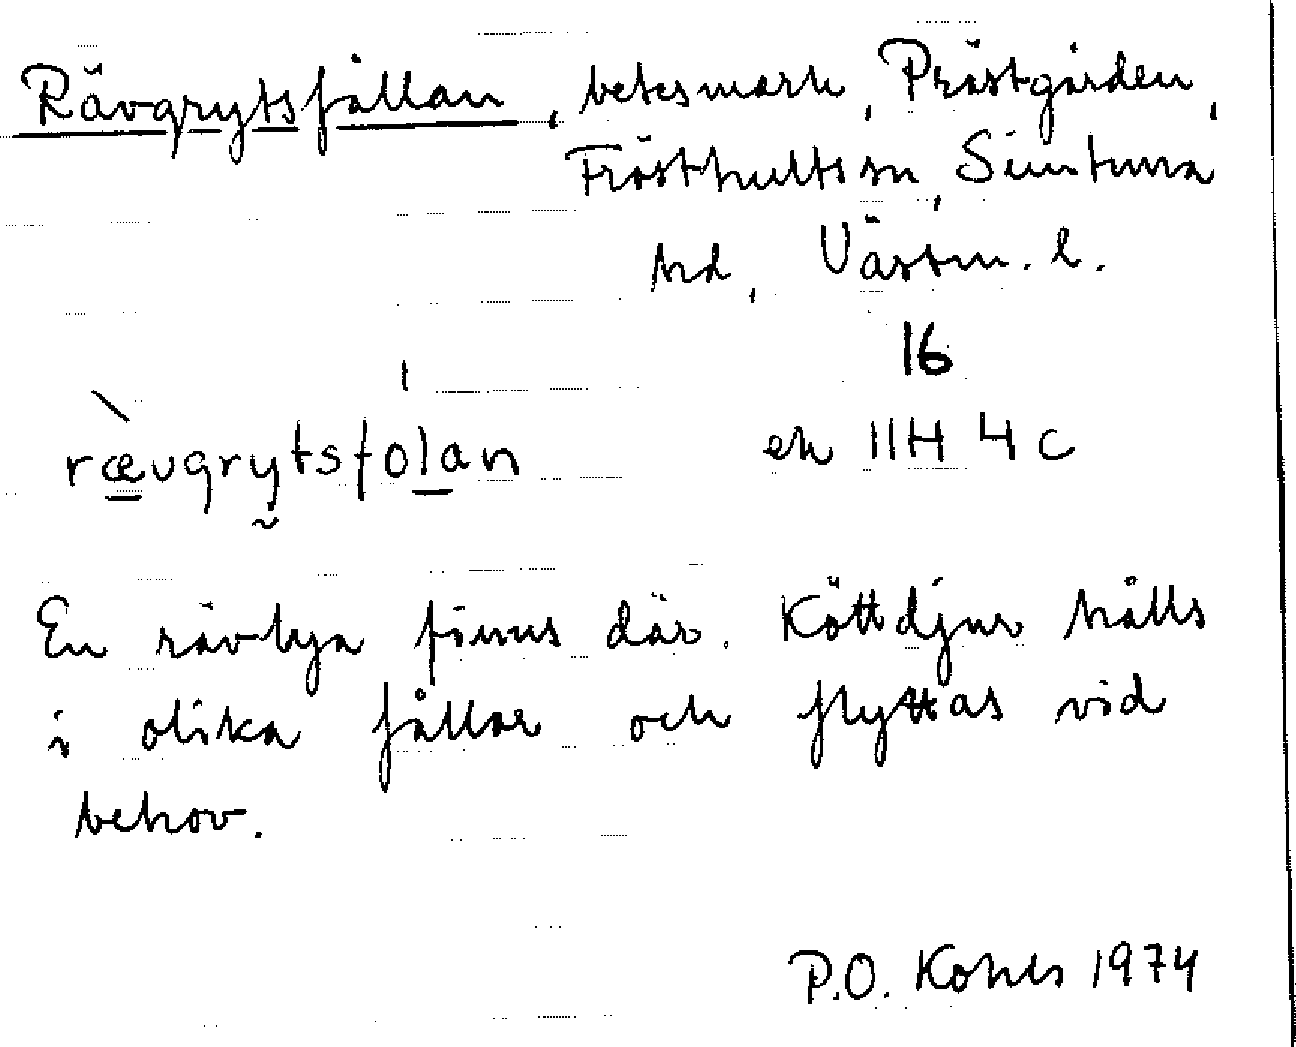 Rävgrytsfållan, betesmark, Prästgården,
Frösthults sn, Simtuna
hd, Västm. l.
16
rævgrytsfolan ek 11H 4c
En rävlya finns där. Köttdjur hålls
i olika fållor och flyttas vid
behov.
P.O. Kohls 1974